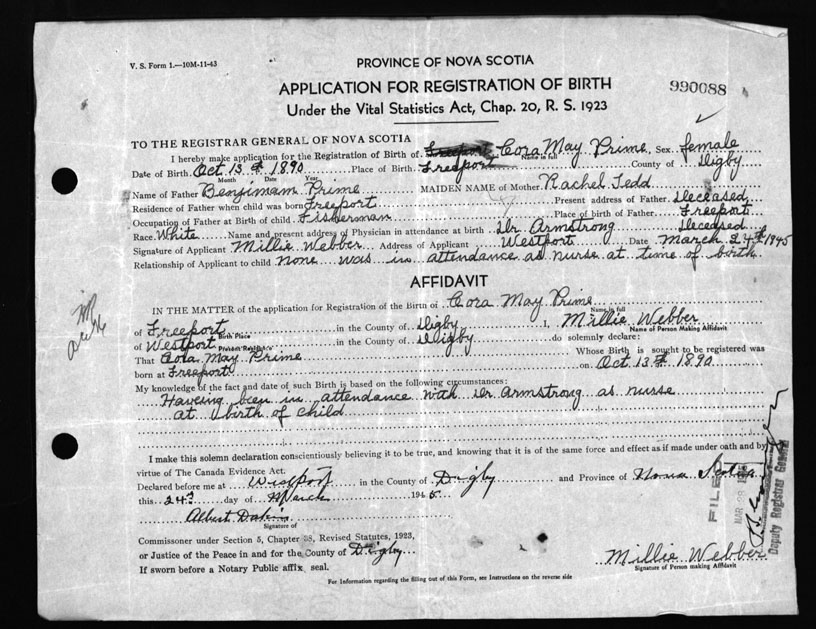 V. S. Form 1.—10M-11-43
PROVINCE OF NOVA SCOTIA
APPLICATION FOR REGISTRATION OF BIRTH
990088
Under the Vital Statistics Act, Chap. 20, R. S. 1923
TO THE REGISTRAR GENERAL OF NOVA SCOTIA
I hereby make application for the Registration of Birth of Freeport Cora May Prime Sex female
Name in full
Date of Birth Oct 13th 1890 Place of Birth Freeport County of Digby
Month Date Year
Name of Father Benjimam Prime MAIDEN NAME of Mother Rachel Tedd
Residence of Father when child was born Freeport Present address of Father Deceased
Occupation of Father at Birth of child Fisherman Place of birth of Father Freeport
Race White Name and present address of Physician in attendance at birth Dr Armstrong Deceased
Signature of Applicant Millie Webber Address of Applicant Westport Date March 24th 1945
Relationship of Applicant to child none was in attendance as nurse at time of birth.
AFFIDAVIT
IN THE MATTER of the application for Registration of the Birth of Cora May Prime
Name in full
of Freeport in the County of Digby I, Millie Webber
Birth Place Name of Person Making Affidavit
of Westport in the County of Digby do solemnly declare:
Present Residence
That Cora May Prime Whose Birth is sought to be registered was
born at Freeport on Oct 13th 1890
My knowledge of the fact and date of such Birth is based on the following circumstances:
Haveing been in attendance with Dr Armstrong as nurse
at birth of child
I make this solemn declaration conscientiously believing it to be true, and knowing that it is of the same force and effect as if made under oath and by
virtue of The Canada Evidence Act.
Declared before me at Westport in the County of Digby and Province of Nova Scotia
this 24th day of March 1945.
Albert Dakin
Signature of
Commissoner under Section 5, Chapter 38, Revised Statutes, 1923,
or Justice of the Peace in and for the County of Digby
If sworn before a Notary Public affix seal.
Millie Webber
Signature of Person making Affidavit
For Information regarding the filling out of this Form, see Instructions on the reverse side
FILED
MAR 28
Deputy Registrar General